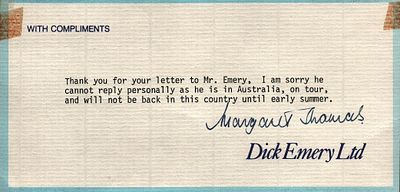 WITH COMPLIMENTS
Thank you for your letter to Mr. Emery, I am sorry he
cannot reply personally as he is in Australia, on tour,
and will not be back in this country until early summer.
Margaret Thomas
Dick Emery Ltd